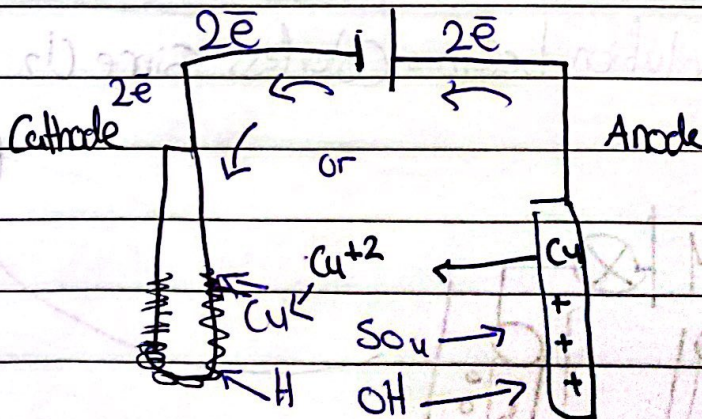 2e̅ 2e̅
2e̅
Cathode Anode
or
Cu
Cu+2
Cu
+
SO4
+
H OH +